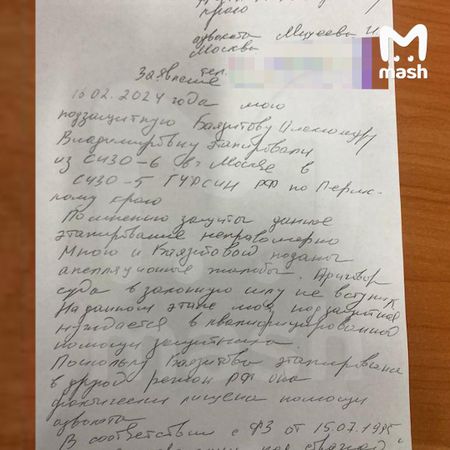 краю
адвоката Михеева И.
Москва
mash
тел.
Заявление
16.02.2024 года мою
подзащитную Баязитову Александру
Владимировну этапировали
из СИЗО-6 в г. Москве в
СИЗО-5 ГУФСИН РФ по Пермс-
кому краю
По мнению защиты данное
этапирование неправомерно
Мною и Баязитовой поданы
апелляционные жалобы. Приговор
суда в законную силу не вступил
На данном этапе моя подзащитная
нуждается в квалифицированной
помощи защитника.
Поскольку Баязитова этапирована
в другой регион РФ она
фактически лишена помощи
адвоката
В соответствии с ФЗ от 15.07.1995
под стражей